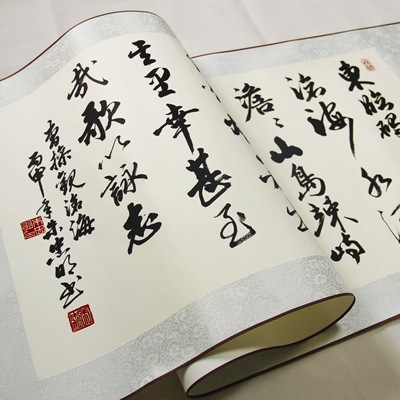 東臨碣
滄海水何
澹澹山島竦峙
其里幸甚至
哉歌以詠志
曹操觀滄海
丙申年
書